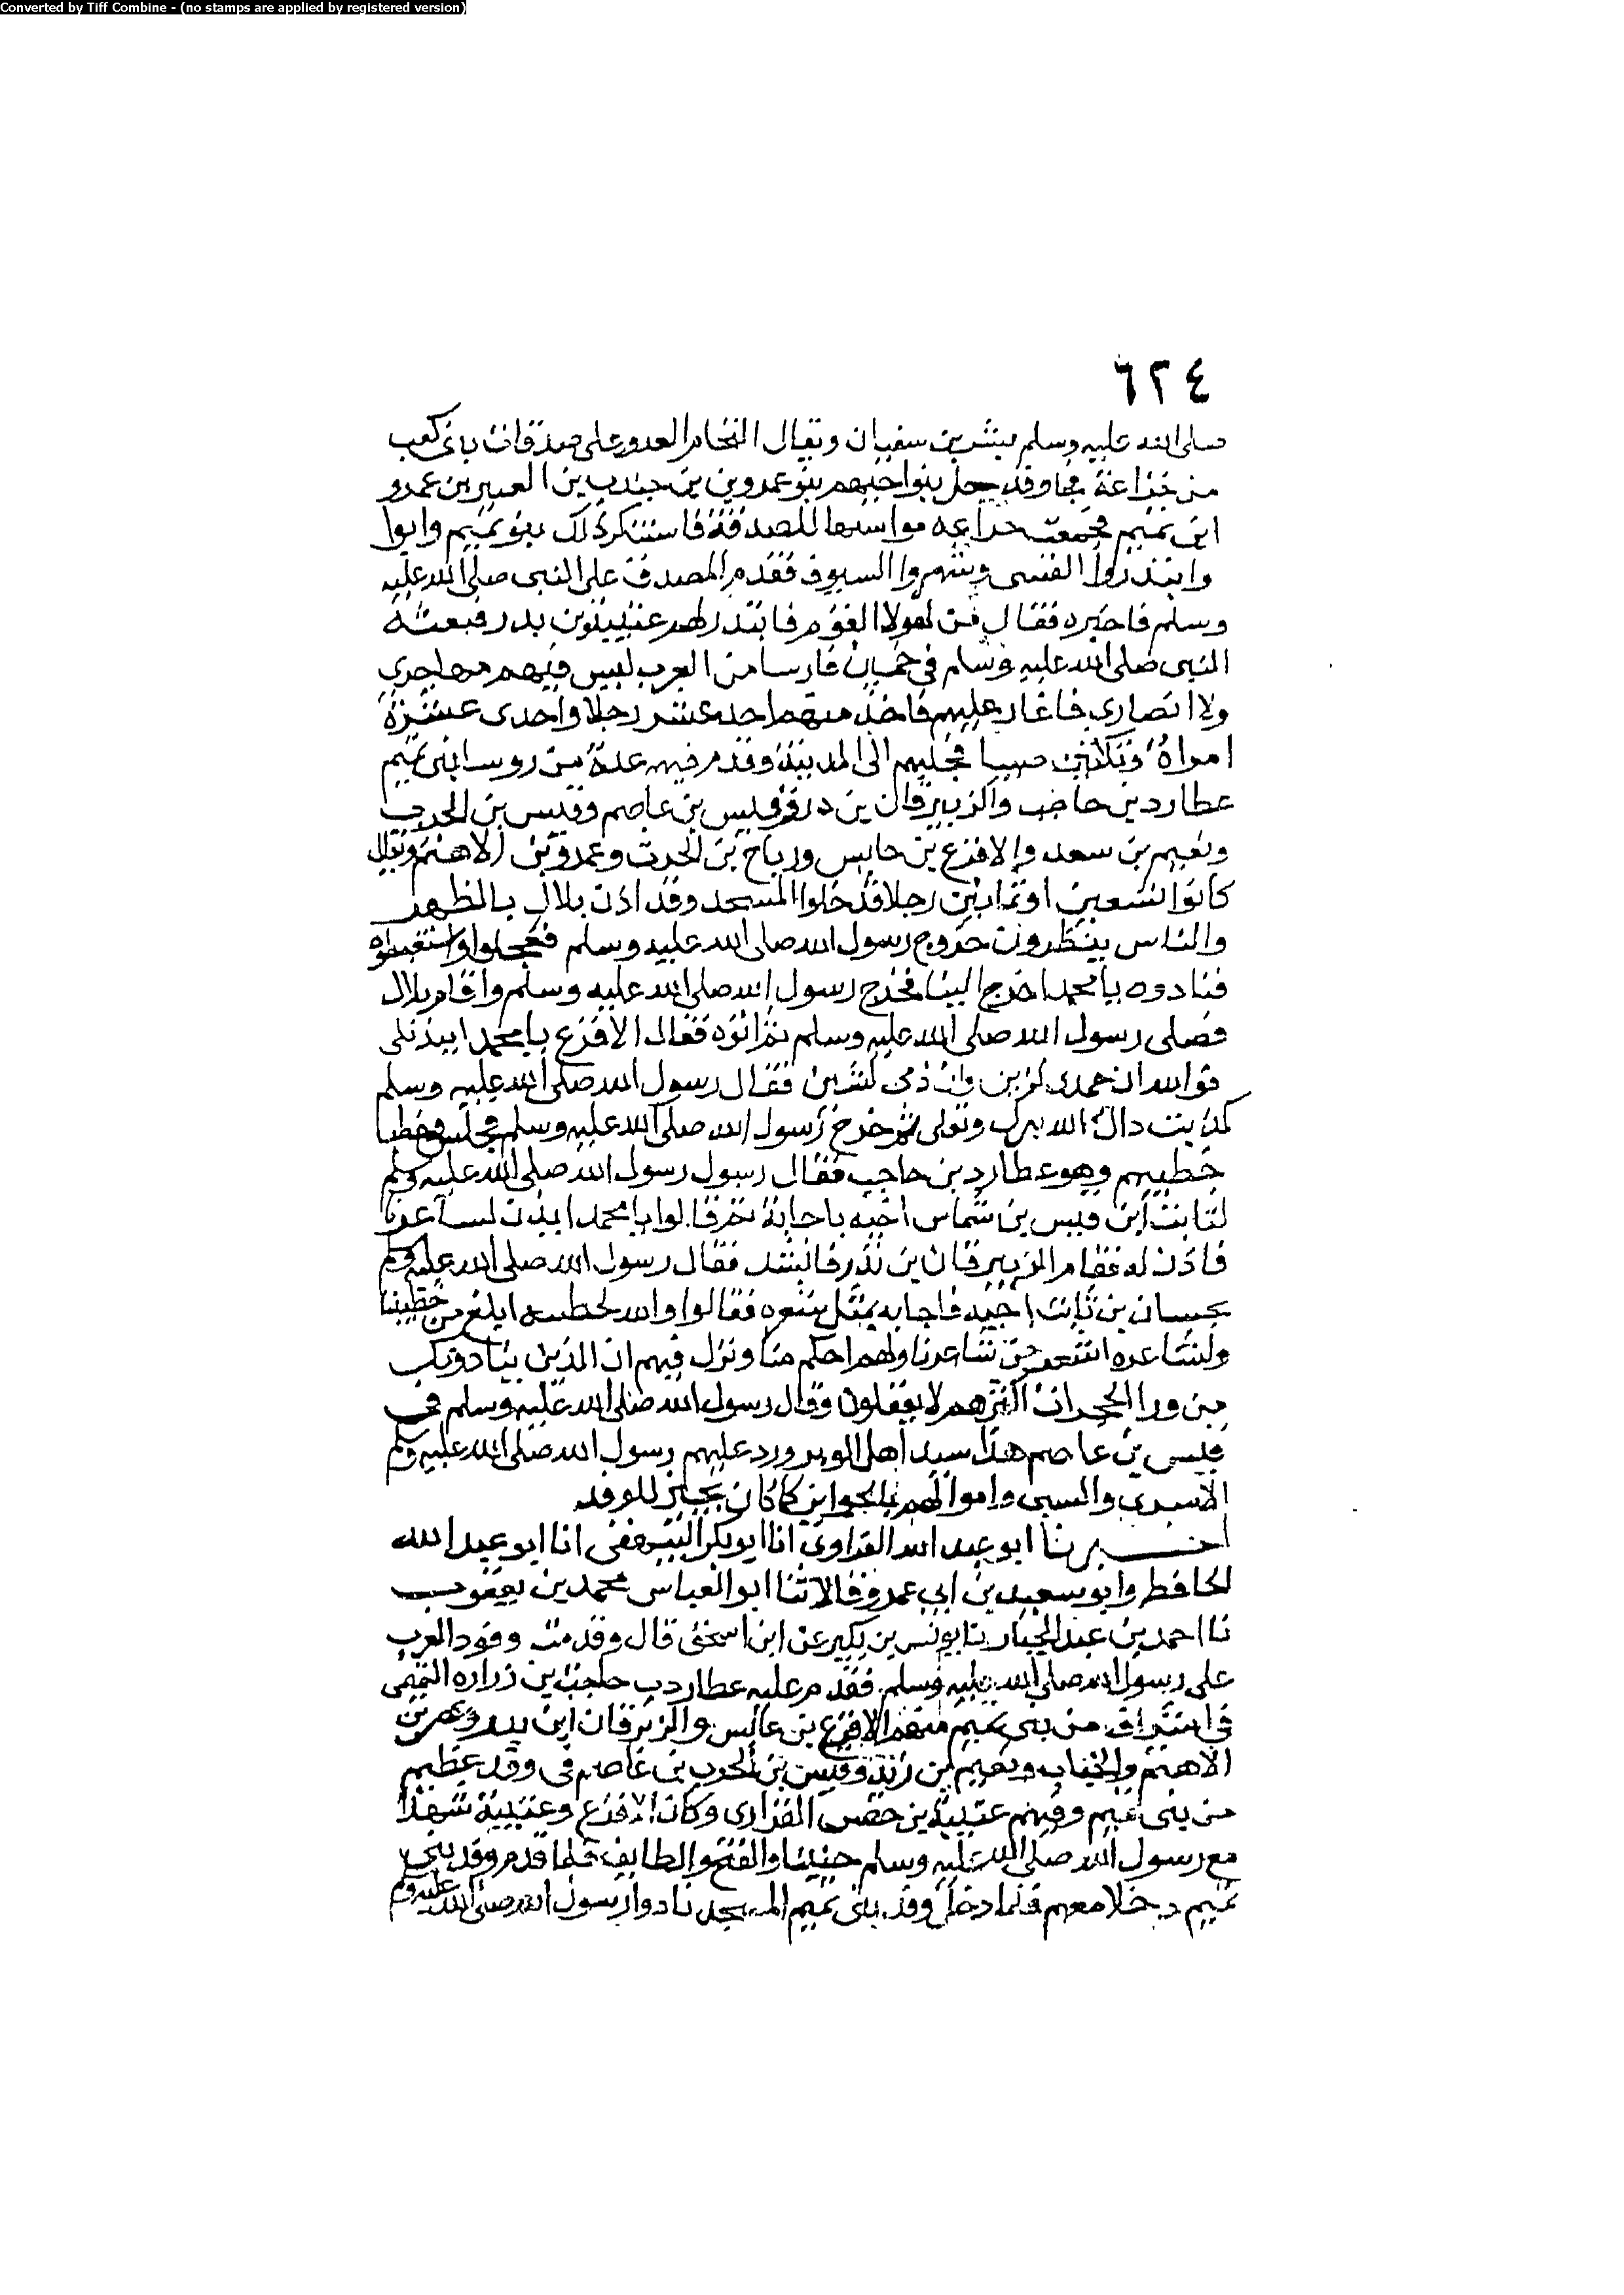 Converted by Tiff Combine - (no stamps are applied by registered version)
٦٢٤
صلى الله عليه وسلم بشر بن سفيان ويقال النحام العدوى على صدقات بنى كعب
من خزاعة فجا وقد حل بنواحيهم بنو عمرو بن جندب بن العنبر بن عمرو
ابن تميم فجمعت خزاعه مواشيها للصدقة فاستنكر ذلك بنو تميم وابوا
وابتدروا القسى وشهروا السيوف فقدم المصدق على النبى صلى الله عليه
وسلم فاخبره فقال من لهولا القوم فابتدر لهم عيينة بن بدر فبعثه
النبى صلى الله عليه وسلم فى خمسين فارسا من العرب ليس فيهم مهاجرى
ولا انصارى فاغار عليهم فاخذ منهم احد عشر رجلا واحدى عشرة
امراة وثلاثين صبيا فجلبهم الى المدينة وقدم فيهم عدة من روسا بنى تميم
عطارد بن حاجب والزبرقان بن بدر وقيس بن عاصم وقيس بن الحرث
ونعيم بن سعد والاقرع بن حابس ورباح بن الحرث وعمرو بن الاهتم ويقال
كانوا تسعين او ثمانين رجلا فدخلوا المسجد وقد اذن بلال بالظهر
والناس ينتظرون خروج رسول الله صلى الله عليه وسلم فعجلوا واستبطوه
فنادوه يا محمد اخرج الينا فخرج رسول الله صلى الله عليه وسلم واقام بلال
فصلى رسول الله صلى الله عليه وسلم ثم اتوه فقال الاقرع يا محمد ايذن لى
فوالله ان حمدى لزين وان ذمى لشين فقال رسول الله صلى الله عليه وسلم
كذبت ذاك الله تبرك وتعلى ثم خرج رسول الله صلى الله عليه وسلم فجلس وخطب
خطيبهم وهو عطارد بن حاجب فقال رسول رسول الله صلى الله عليه وسلم
لثابت ابن قيس بن شماس اجبه فاجابه ثم قالوا يا محمد ايذن لشاعرنا
فاذن له فقام الزبرقان بن بدر فانشد فقال رسول الله صلى الله عليه وسلم
لحسان بن ثابت اجبه فاجابه بمثل شعره فقالوا والله لخطيبه ابلغ من خطيبنا
ولشاعره اشعر من شاعرنا ولهم احكم منا ونزل فيهم ان الذين ينادونك
من ورا الحجرات اكثرهم لا يعقلون وقال رسول الله صلى الله عليه وسلم فى
قيس بن عاصم هذا سيد اهل الوبر ورد عليهم رسول الله صلى الله عليه وسلم
الاسرى والسبى وامر لهم بالجوايز كما كان يجيز للوفد
اخبرنا ابو عبد الله الفراوى انا ابو بكر البيهقى انا ابو عبد الله
الحافظ وابو سعيد بن ابى عمرو قالا ثنا ابو العباس محمد بن يعقوب
نا احمد بن عبد الجبار نا يونس بن بكير عن ابن اسحق قال وقدمت وفود العرب
على رسول الله صلى الله عليه وسلم فقدم عليه عطارد بن حاجب بن زراره التميمى
فى اشراف من بنى تميم منهم الاقرع بن حابس والزبرقان ابن بدر وعمرو بن
الاهتم والحتات ونعيم بن زيد وقيس بن الحرث بن عاصم فى وفد عظيم
من بنى تميم وفيهم عيينة بن حصن الفزارى وكان الاقرع وعيينة شهدا
مع رسول الله صلى الله عليه وسلم حنينا والفتح والطايف فلما قدم وفد بنى
تميم دخلا معهم فلما دخل وفد بنى تميم المسجد نادوا رسول الله صلى الله عليه وسلم